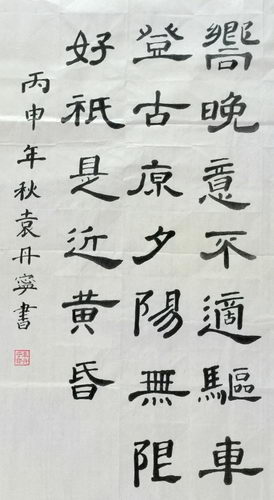 嚮晚意不適驅車
登古原夕陽無限
好祇是近黃昏
丙申年秋袁丹寧書